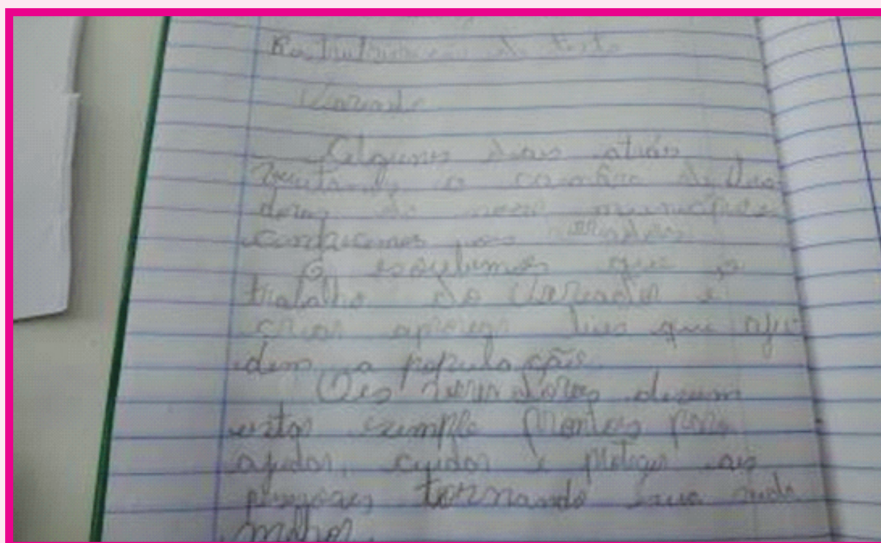 Restruturação do texto
Vereador
Alguns dias atrás
visitando a camâra de Verea
dores do nosso município
conhecemos os vereadores
E descubrimos que o
trabalho do Vereador é
criar aprovar leis que aju
dem a população.
Os vereadores devem
estar sempre prontos para
ajudar, cuidar e proteger as
pessoas tornando sua vida
melhor.